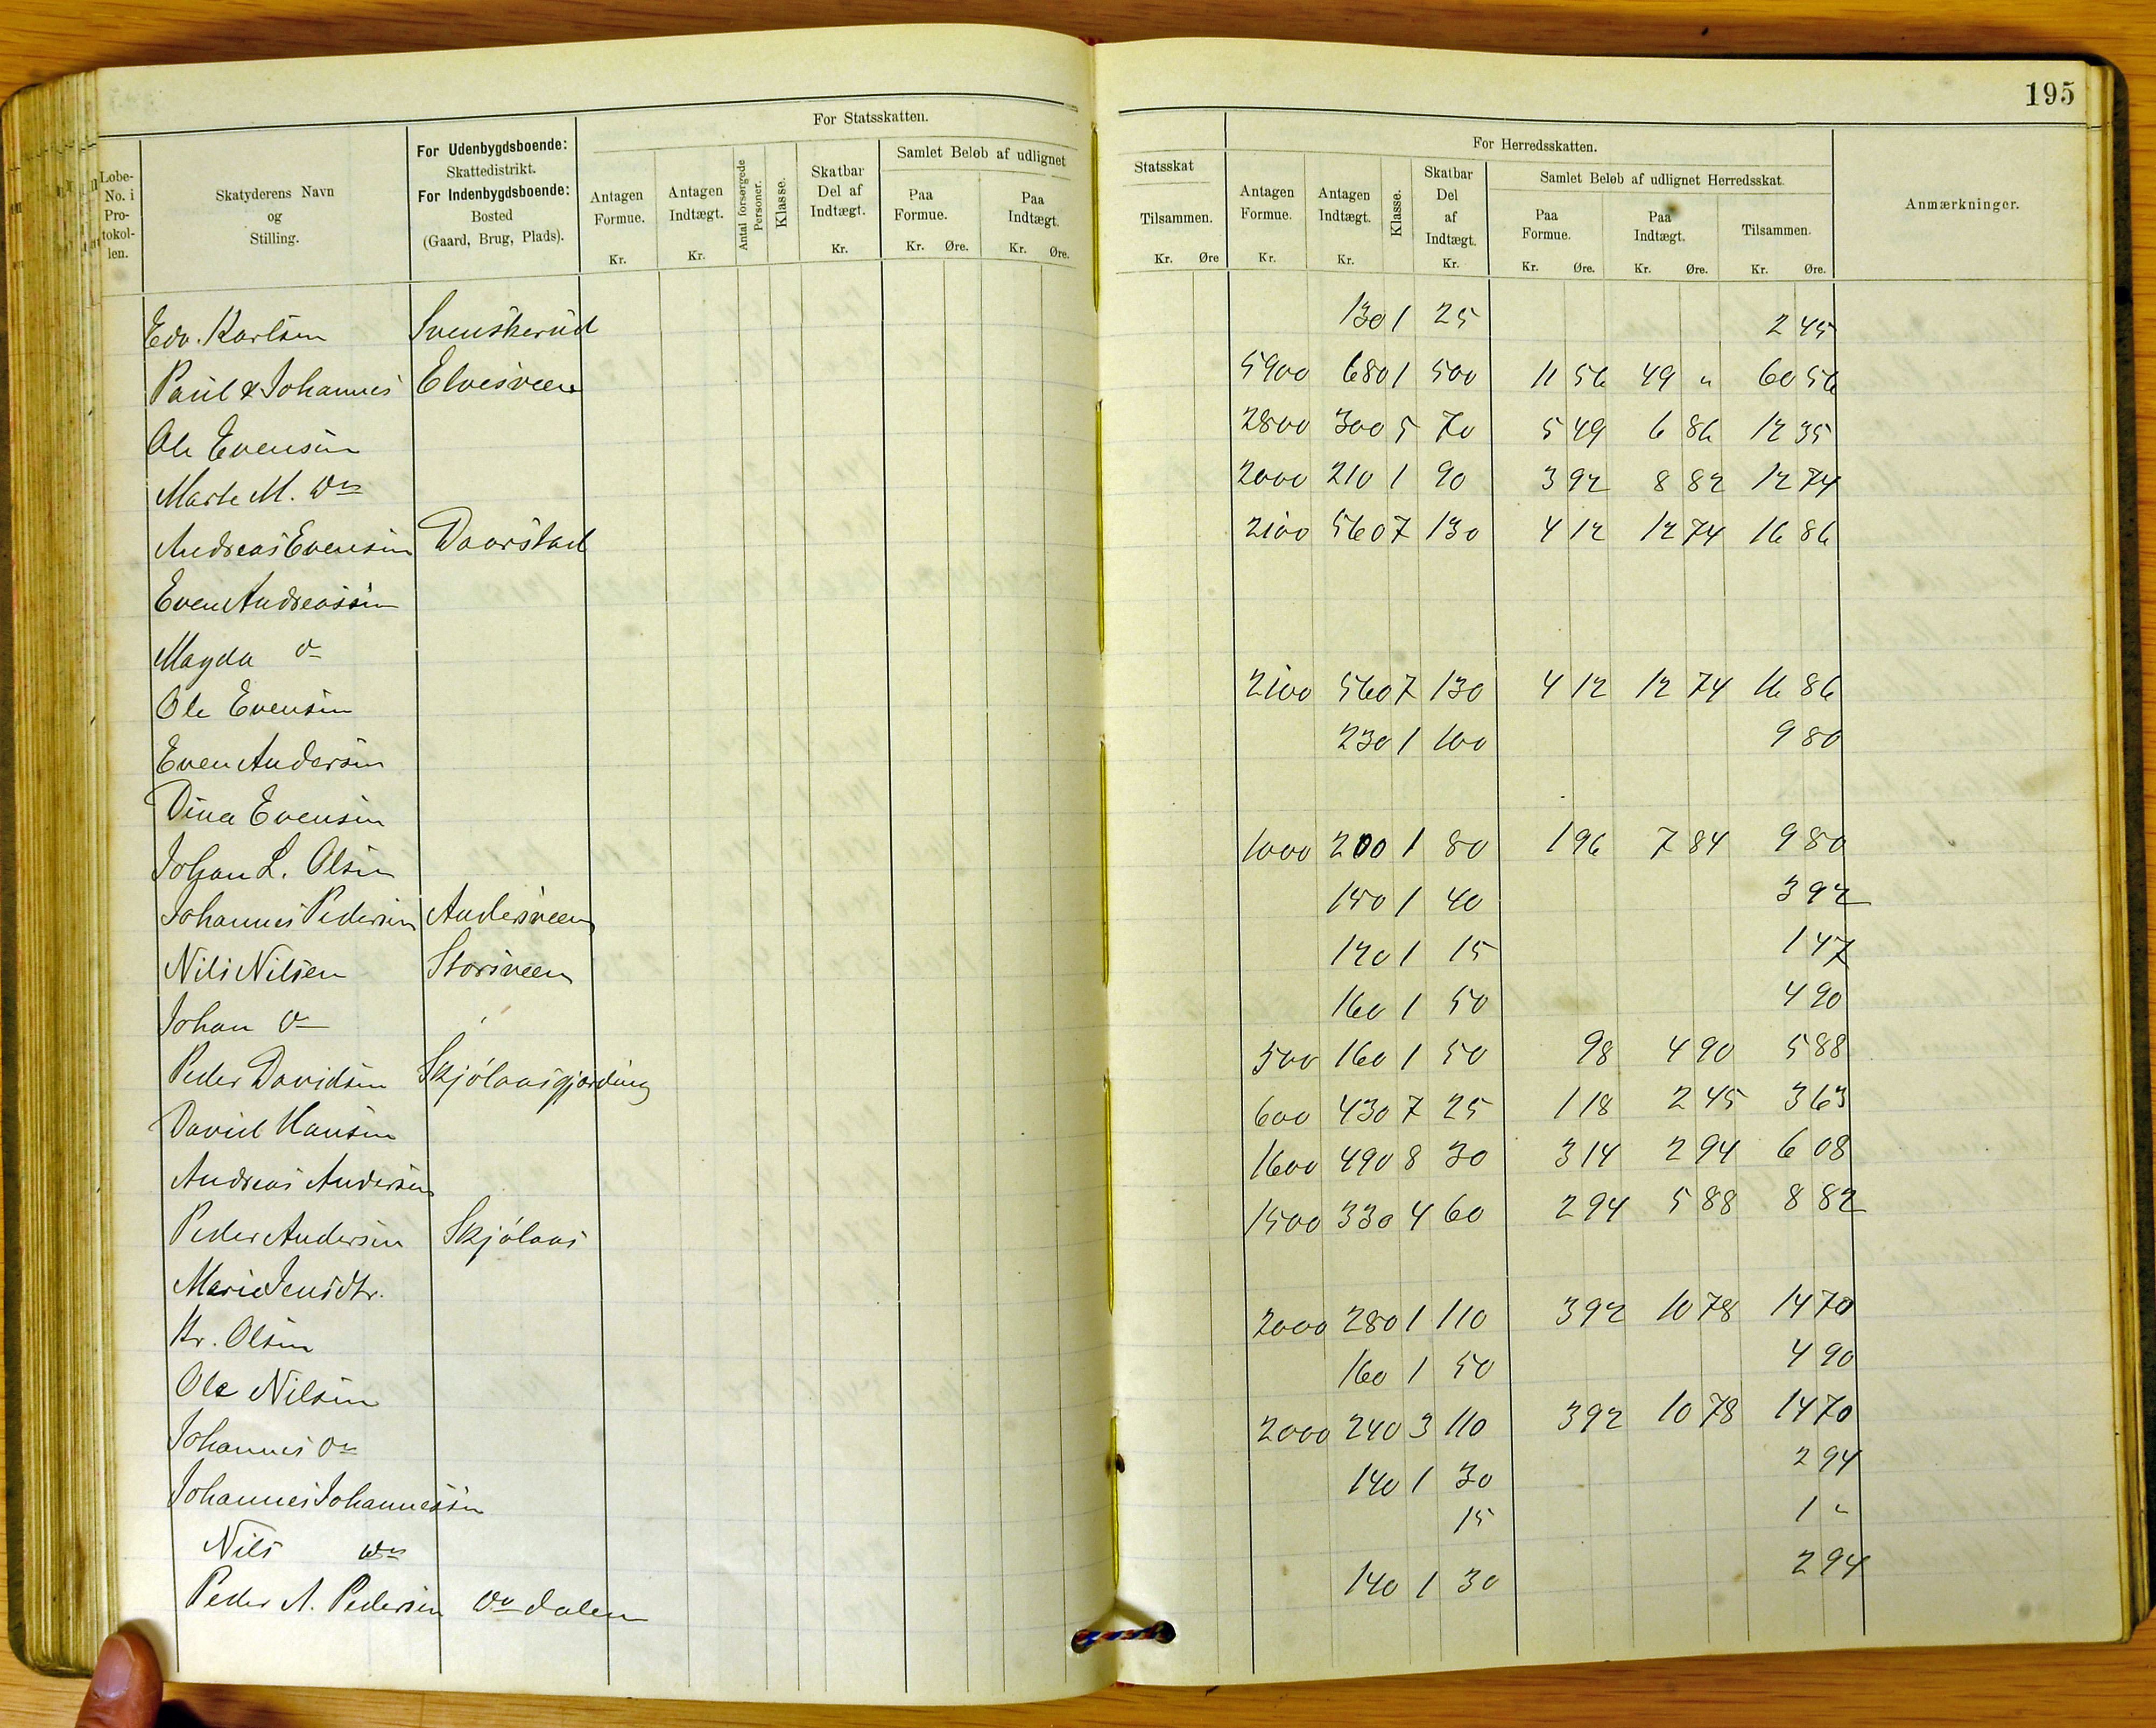 195
For Statsskatten.
For Herredsskatten.
Lobe-No. i Pro-tokol-len.
Skatyderens Navn og Stilling.
For Udenbygdsboende: Skattedistrikt. For Indenbygdsboende: Bosted (Gaard, Brug, Plads).
Antagen Formue. Kr.
Antagen Indtægt. Kr.
Antal forsørgede Personer.
Klasse.
Skatbar Del af Indtægt. Kr.
Samlet Beløb af udlignet
Paa Formue. Kr. Øre.
Paa Indtægt. Kr. Øre.
Statsskat
Tilsammen. Kr. Øre
Antagen Formue. Kr.
Antagen Indtægt. Kr.
Klasse.
Skatbar Del af Indtægt. Kr.
Samlet Beløb af udlignet Herredsskat.
Paa Formue. Kr. Øre.
Paa Indtægt. Kr. Øre.
Tilsammen. Kr. Øre.
Anmærkninger.
Edv. Karlsen Svenskerud 130 1 25 2 45
Paul & Johannes Elvesveen 5900 680 1 500 11 56 49 " 60 56
Ole Evensen 2800 300 5 70 5 49 6 86 12 35
Marte M. Do 2000 210 1 90 3 92 8 82 12 74
Andreas Evensen Daarstad 2100 560 7 130 4 12 12 74 16 86
Even Andreassen
Magda do
Ole Evensen 2100 560 7 130 4 12 12 74 16 86
Even Andersen 230 1 100 9 80
Dina Evensen
Johan L. Olsen 1000 200 1 80 1 96 7 84 9 80
Johannes Pedersen Andersveen 150 1 40 3 92
Nils Nilsen Storsveen 120 1 15 1 47
Johan do 160 1 50 4 90
Peder Davidsen Skjølaasgjærding 500 160 1 50 98 4 90 5 88
David Hansen 600 430 7 25 1 18 2 45 3 63
Andreas Andersen 1600 490 8 30 3 14 2 94 6 08
Peder Andersen Skjølaas 1500 330 4 60 2 94 5 88 8 82
Marie Jensdtr.
Kr. Olsen 2000 280 1 110 3 92 10 78 14 70
Ole Nilsen 160 1 50 4 90
Johannes do 2000 240 3 110 3 92 10 78 14 70
Johannes Johannessen 140 1 30 2 94
Nils do 15 1 "
Peder A. Pedersen do dalen 140 1 30 2 94